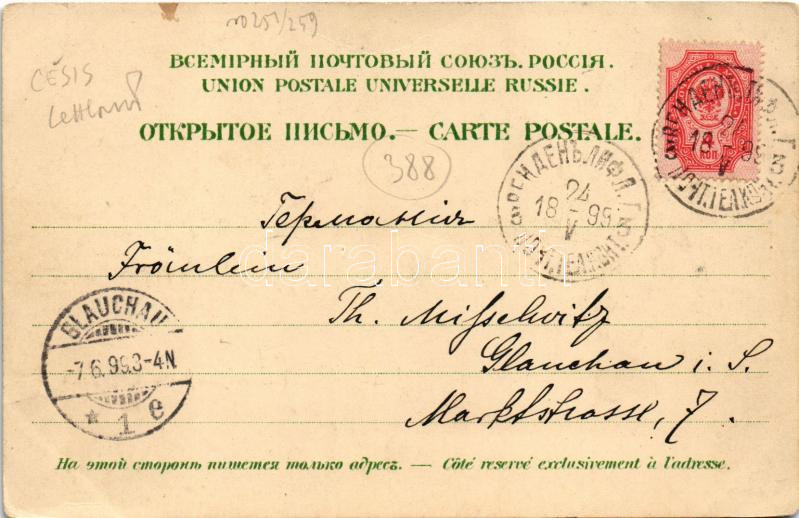 CĒSIS
Lettland
ВСЕМІРНЫЙ ПОЧТОВЫЙ СОЮЗЪ. РОССІЯ.
UNION POSTALE UNIVERSELLE RUSSIE.
ОТКРЫТОЕ ПИСЬМО.— CARTE POSTALE.
388
4 КОП
ВЕНДЕНЪ ЛИФЛ. Г.
24
18 - 99
V
ПОЧТ. ТЕЛ. КОНТ.
ВЕНДЕНЪ ЛИФЛ. Г.
24
18 - 99
V
ПОЧТ. ТЕЛ. КОНТ.
Германія
Fräulein
Th. Misselwitz
Glauchau i. S.
Marktstrasse, 7.
GLAUCHAU
-7.6.99.3-4N.
* 1 e
darabanth
На этой сторонѣ пишется только адресъ. — Côté reservé exclusivement à l'adresse.